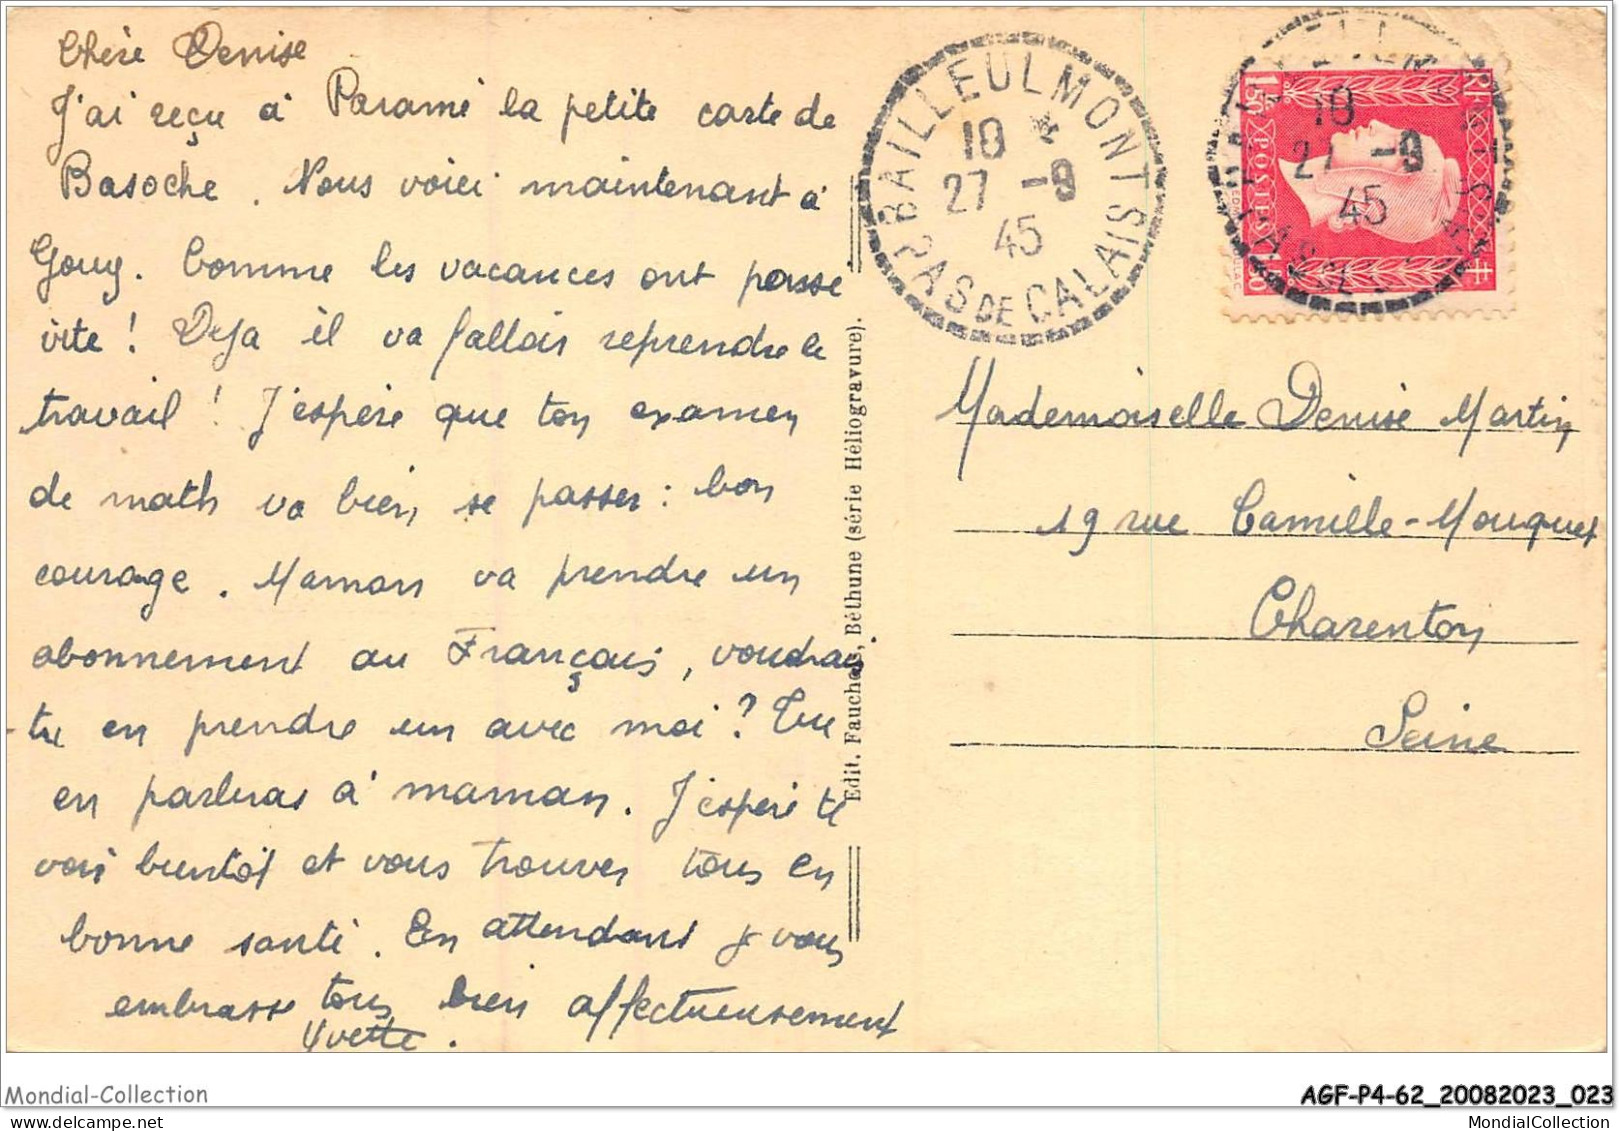 Chère Denise
J'ai reçu à Paramé la petite carte de
Basoche. Nous voici maintenant à
Gouy. Comme les vacances ont passé
vite! Déjà il va falloir reprendre le
travail! J'espère que ton examen
de math va bien se passer: bon
courage. Maman va prendre un
abonnement au Français, voudrais
-tu en prendre un avec moi? Tu
en parleras à maman. J'espère te
voir bientôt et vous trouver tous en
bonne santé. En attendant je vous
embrasse tous bien affectueusement
Yvette.
Edit. Fauchois, Béthune (série Héliogravure).
BAILLEULMONT
18 *
27 -9
45
PAS DE CALAIS
RF
1f50 POSTES 1f50
18
27 -9
45
Mademoiselle Denise Martin
19 rue Camille-Mouquet
Charenton
Seine
Mondial-Collection
AGF-P4-62_20082023_023
MondialCollection